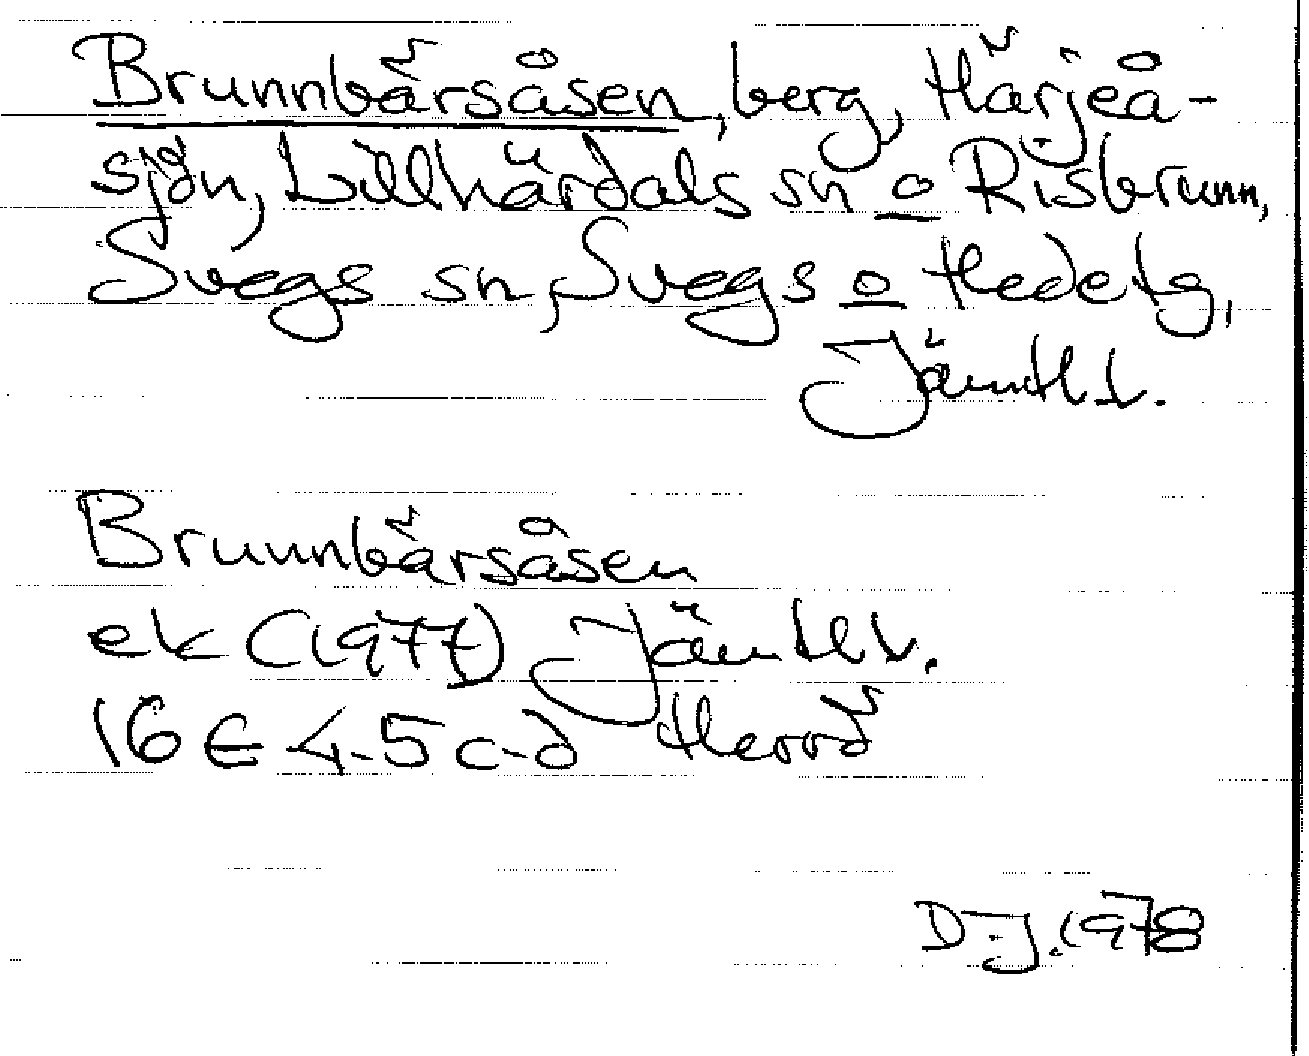 Brunnbärsåsen, berg, Härjeå-
sjön, Lillhärdals sn o Risbrunn,
Svegs sn, Svegs o Hedetg,
Jämtl l.
Brunnbärsåsen
ek (1977) Jämtl l.
16 E 4-5 c-d Herrö
D.J. 1978